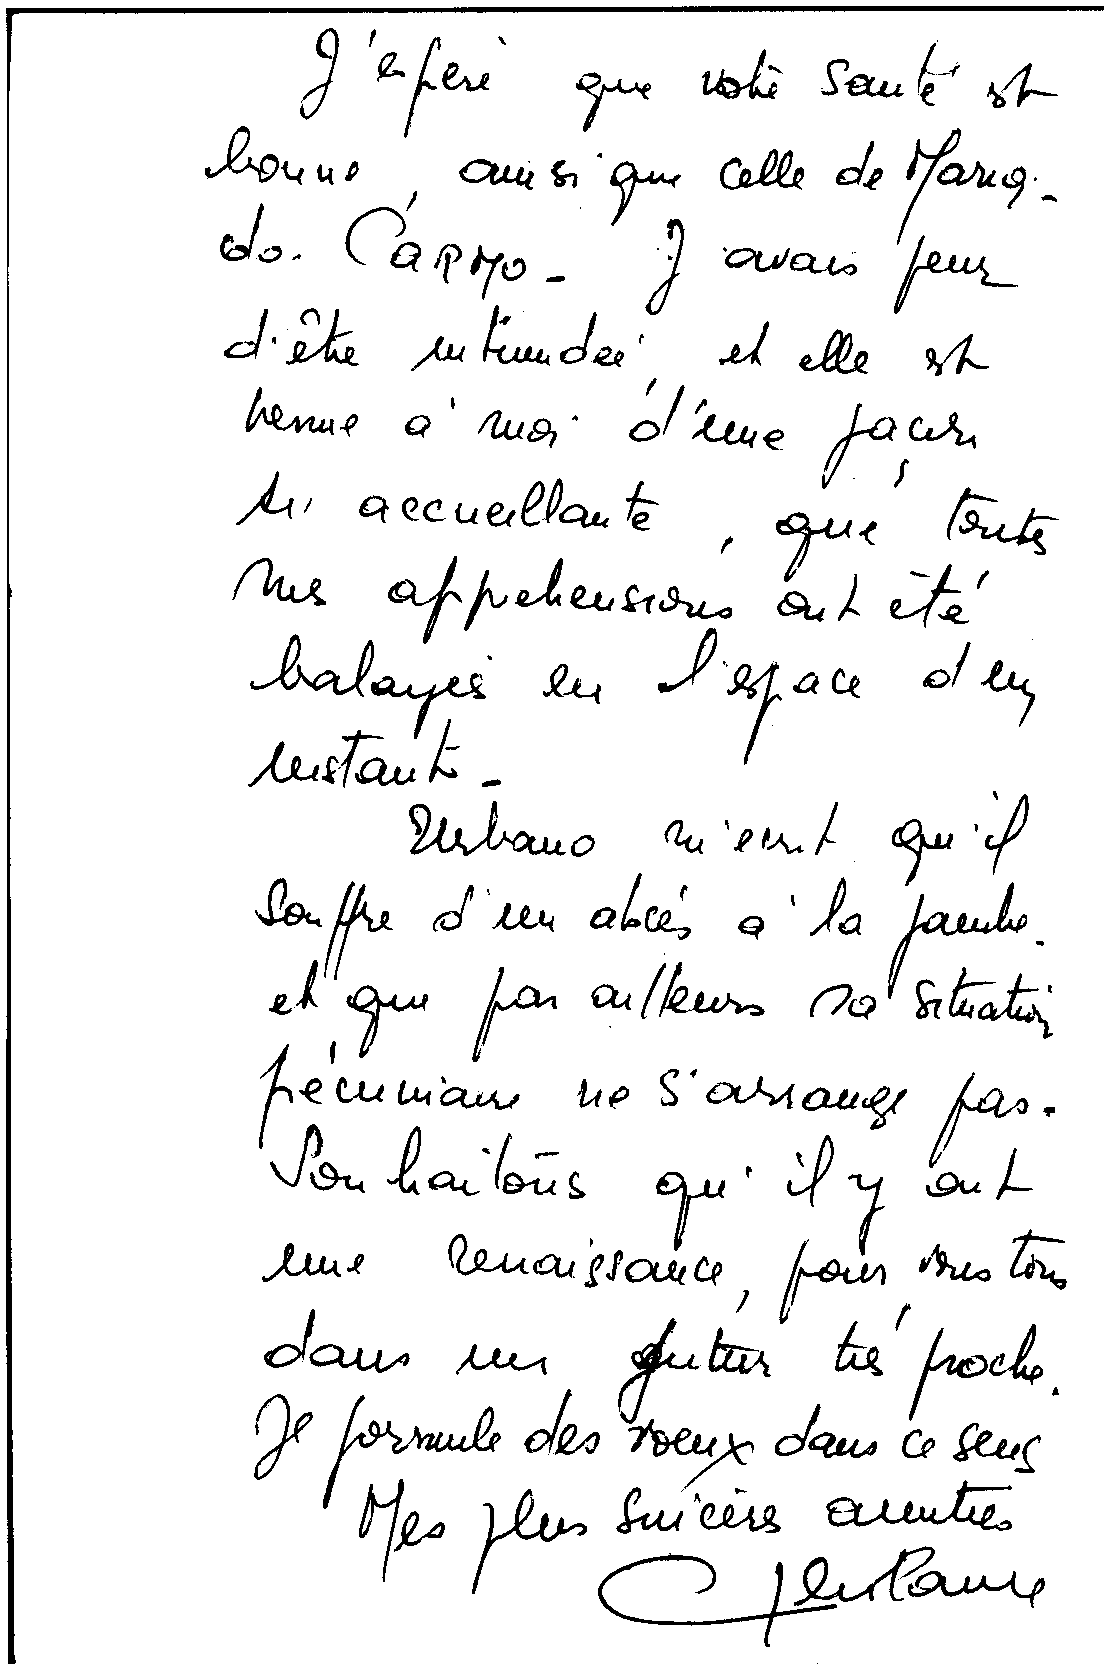 J'espère que votre santé est
bonne, ainsi que celle de Maria-
do. CARMO - J'avais peur
d'être intimidée, et elle est
venue à moi d'une façon
si accueillante, que toutes
mes appréhensions ont été
balayés en l'espace d'un
instant -
Urbano m'écrit qu'il
souffre d'un abcés à la jambe.
et que par ailleurs sa situation
pécuniaire ne s'arrange pas.
Souhaitons qu'il y ait
une renaissance, pour vous tous
dans un futur trés proche.
Je formule des voeux dans ce sens
Mes plus sincères amitiés
Ghislaine